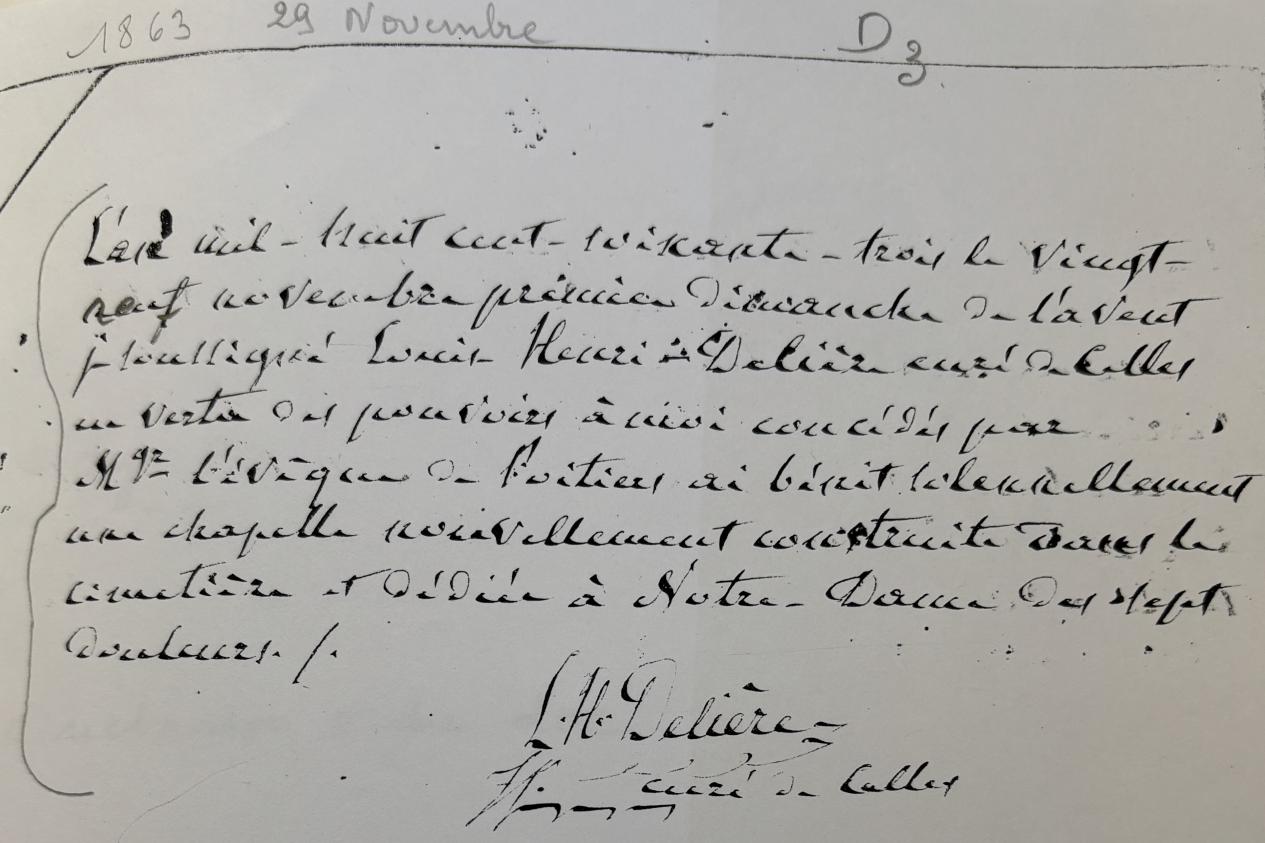 1863 29 Novembre D3
L'an mil-huit cent-soixante-trois le vingt-
neuf novembre premier dimanche de l'avent
je soussigné Louis-Henri Delière curé de Celles
en vertu des pouvoirs à moi concédés par
Mgr l'évêque de Poitiers ai bénit solennellement
une chapelle nouvellement construite dans le
cimetière et dédiée à Notre-Dame des sept
douleurs./.
L.H. Delière
curé de Celles